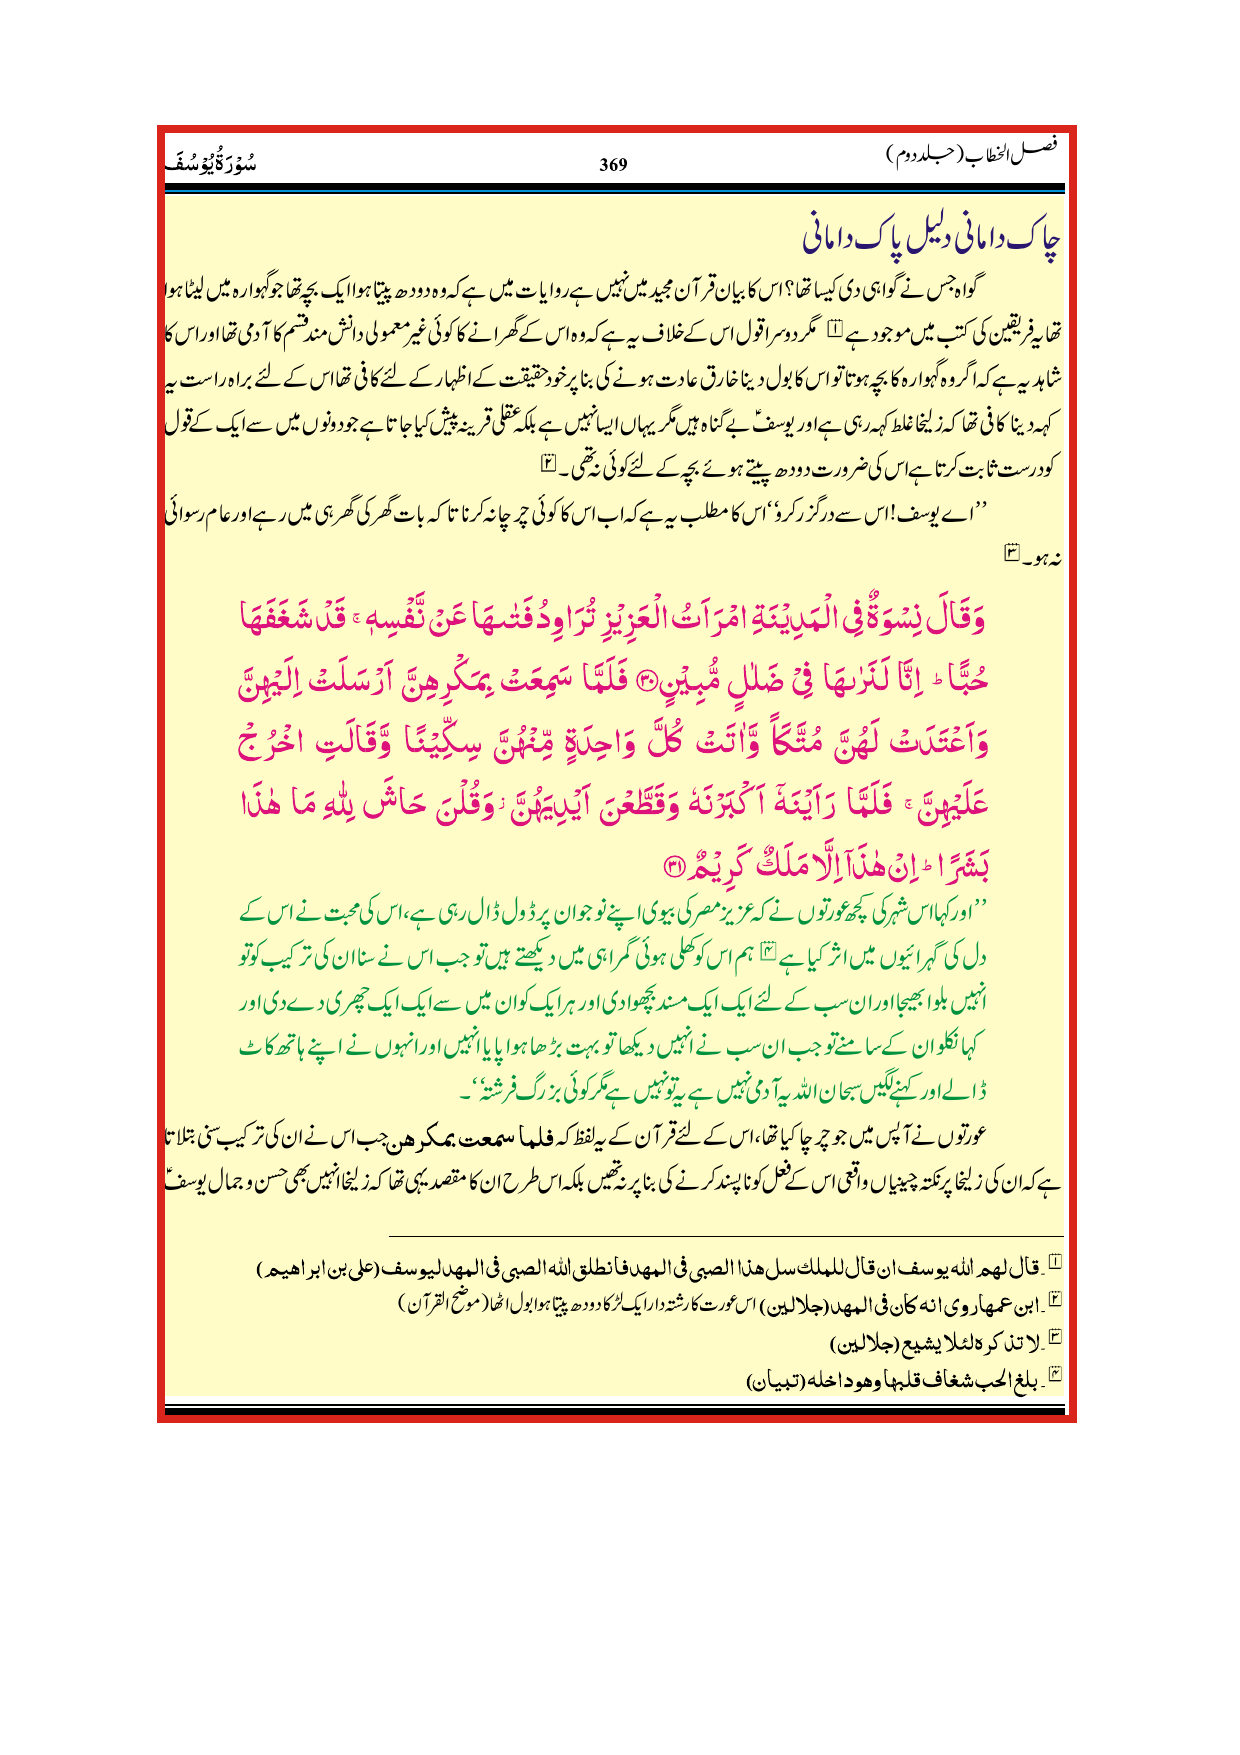 فصل الخطاب (جلد دوم)
369
سُوۡرَۃُ یُوۡسُفَ
چاک دامانی دلیل پاک دامانی
گواہ جس نے گواہی دی کیسا تھا؟ اس کا بیان قرآن مجید میں نہیں ہے روایات میں ہے کہ وہ دودھ پیتا ہوا ایک بچہ تھا جو گہوارہ میں لیٹا ہوا
تھا یہ فریقین کی کتب میں موجود ہے ۱ مگر دوسرا قول اس کے خلاف یہ ہے کہ وہ اس کے گھرانے کا کوئی غیر معمولی دانش مند قسم کا آدمی تھا اور اس کا
شاہد یہ ہے کہ اگر وہ گہوارہ کا بچہ ہوتا تو اس کا بول دینا خارق عادت ہونے کی بنا پر خود حقیقت کے اظہار کے لئے کافی تھا اس کے لئے براہ راست یہ
کہہ دینا کافی تھا کہ زلیخا غلط کہہ رہی ہے اور یوسفؑ بے گناہ ہیں مگر یہاں ایسا نہیں ہے بلکہ عقلی قرینہ پیش کیا جاتا ہے جو دونوں میں سے ایک کے قول
کو درست ثابت کرتا ہے اس کی ضرورت دودھ پیتے ہوئے بچہ کے لئے کوئی نہ تھی۔ ۲
’’اے یوسف! اس سے درگزر کرو‘‘ اس کا مطلب یہ ہے کہ اب اس کا کوئی چرچا نہ کرنا تا کہ بات گھر کی گھر ہی میں رہے اور عام رسوائی
نہ ہو۔ ۳
وَقَالَ نِسْوَةٌ فِی الْمَدِيْنَةِ امْرَاَتُ الْعَزِيْزِ تُرَاوِدُ فَتٰىهَا عَنْ نَّفْسِهٖ ۚ قَدْ شَغَفَهَا
حُبًّا ؕ اِنَّا لَنَرٰىهَا فِیْ ضَلٰلٍ مُّبِيْنٍ ﴿۳۰﴾ فَلَمَّا سَمِعَتْ بِمَكْرِهِنَّ اَرْسَلَتْ اِلَيْهِنَّ
وَاَعْتَدَتْ لَهُنَّ مُتَّكَاً وَّاٰتَتْ كُلَّ وَاحِدَةٍ مِّنْهُنَّ سِكِّيْنًا وَّقَالَتِ اخْرُجْ
عَلَيْهِنَّ ۚ فَلَمَّا رَاَيْنَهٗۤ اَكْبَرْنَهٗ وَقَطَّعْنَ اَيْدِيَهُنَّ ۫ وَقُلْنَ حَاشَ لِلّٰهِ مَا هٰذَا
بَشَرًا ؕ اِنْ هٰذَاۤ اِلَّا مَلَكٌ كَرِيْمٌ ﴿۳۱﴾
’’اور کہا اس شہر کی کچھ عورتوں نے کہ عزیز مصر کی بیوی اپنے نوجوان پر ڈول ڈال رہی ہے، اس کی محبت نے اس کے
دل کی گہرائیوں میں اثر کیا ہے ۴ ہم اس کو کھلی ہوئی گمراہی میں دیکھتے ہیں تو جب اس نے سنا ان کی ترکیب کو تو
انہیں بلوا بھیجا اور ان سب کے لئے ایک ایک مسند بچھوا دی اور ہر ایک کو ان میں سے ایک ایک چھری دے دی اور
کہا نکلو ان کے سامنے تو جب ان سب نے انہیں دیکھا تو بہت بڑھا ہوا پایا انہیں اور انہوں نے اپنے ہاتھ کاٹ
ڈالے اور کہنے لگیں سبحان اللہ یہ آدمی نہیں ہے یہ تو نہیں ہے مگر کوئی بزرگ فرشتہ‘‘۔
عورتوں نے آپس میں جو چرچا کیا تھا، اس کے لئے قرآن کے یہ لفظ کہ فلما سمعت بمکرھن جب اس نے ان کی ترکیب سنی بتلاتا
ہے کہ ان کی زلیخا پر نکتہ چینیاں واقعی اس کے فعل کو ناپسند کرنے کی بنا پر نہ تھیں بلکہ اس طرح ان کا مقصد یہی تھا کہ زلیخا انہیں بھی حسن و جمال یوسفؑ
۱۔ قال لھم اللہ یوسف ان قال للملك سل ھذا الصبی فی المھد فانطلق اللہ الصبی فی المھد لیوسف (علی بن ابراھیم)
۲۔ ابن عمھا روی انہ کان فی المھد (جلالین) اس عورت کا رشتہ دار ایک لڑکا دودھ پیتا ہوا بول اٹھا (موضح القرآن)
۳۔ لا تذکرہ لئلا یشیع (جلالین)
۴۔ بلغ الحب شغاف قلبھا وھو داخلہ (تبیان)